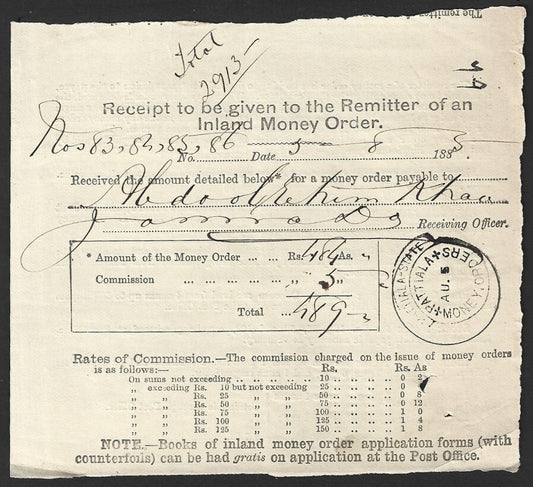 The remitter
Total
2913-
Receipt to be given to the Remitter of an
Inland Money Order.
Nos 83, 84, 85, 86
No. Date 5 8 1885
Received the amount detailed below* for a money order payable to
Khan
Receiving Officer.
* Amount of the Money Order ... ... Rs. 484 As. "
Commission ... ... ... ... ... " 5 "
Total ... 489 -
PATTIALA-STATE
PATTIALA
AU. 5
MONEY-ORDERS
Rates of Commission.—The commission charged on the issue of money orders
is as follows:— Rs. Rs. As
On sums not exceeding .. .. .. .. 10 .. .. .. .. 0 2
" exceeding Rs. 10 but not exceeding 25 .. .. .. .. 0 4
" " Rs. 25 " " 50 .. .. .. .. 0 8
" " Rs. 50 " " 75 .. .. .. .. 0 12
" " Rs. 75 " " 100 .. .. .. .. 1 0
" " Rs. 100 " " 125 .. .. .. .. 1 4
" " Rs. 125 " " 150 .. .. .. .. 1 8
NOTE.—Books of inland money order application forms (with
counterfoils) can be had gratis on application at the Post Office.